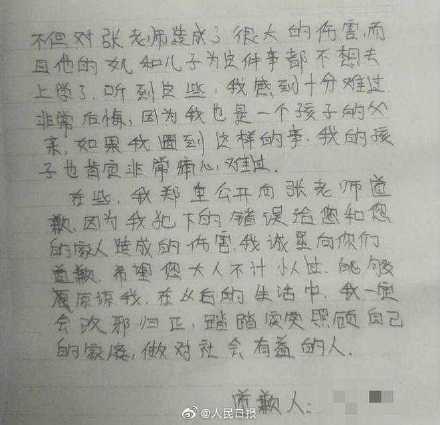 不但对张老师造成了很大的伤害,而
且他的女儿和儿子为这件事都不想去
上学了.听到这些,我感到十分难过.
非常后悔,因为我也是一个孩子的父
亲,如果我遇到这样的事,我的孩
子也肯定非常痛心,难过.
在些,我郑重公开向张老师道
歉.因为我犯下的错误给您和您
的家人造成的伤害.我诚垦向你们
道歉.希望您大人不计小人过.能够
原谅我.在以后的生活中,我一定
会改邪归正,踏踏实实照顾自己
的家庭,做对社会有益的人.
道歉人:
@人民日报